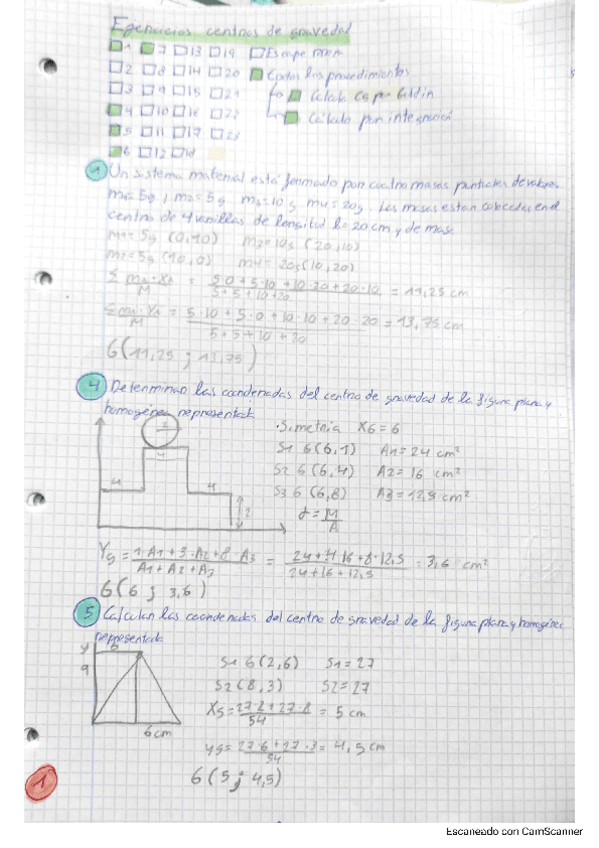 Ejercicios centros de gravedad
1 7 13 19 Escape room
2 8 14 20 Todos los procedimientos
3 9 15 21 Cálculo CG por Guldin
4 10 16 22 Cálculo por integración
5 11 17 23
6 12 18
1 Un sistema material está formado por cuatro masas puntuales de valores
m1=5g, m2=5g m3=10g m4=20g. Las masas están colocadas en el
centro de 4 varillas de longitud l=20cm y de masa
m1=5g (0,10) m3=10g (20,10)
m2=5g (10,0) m4=20g (10,20)
Σ mi·Xi / M = 5·0+5·10+10·20+20·10 / 5+5+10+20 = 11,25 cm
Σ mi·Yi / M = 5·10+5·0+10·10+20·20 / 5+5+10+20 = 13,75 cm
G(11,25 ; 13,75)
4 Determinar las coordenadas del centro de gravedad de la figura plana y
homogénea representada
·Simetria XG=6
S1 G(6,1) A1=24 cm²
S2 G(6,4) A2=16 cm²
S3 G(6,8) A3=12,5 cm²
σ=M/A
4 4 4 2
Yg = 1·A1+3·A2+8·A3 / A1+A2+A3 = 24+4·16+8·12,5 / 24+16+12,5 = 3,6 cm²
G(6 ; 3,6)
5 Calcular las coordenadas del centro de gravedad de la figura plana y homogénea
representada
y
9
6cm
S1 G(2,6) S1=27
S2(8,3) S2=27
Xg = 27·2+27·8 / 54 = 5 cm
yg = 27·6+27·3 / 54 = 4,5 cm
G(5 ; 4,5)
1
Escaneado con CamScanner